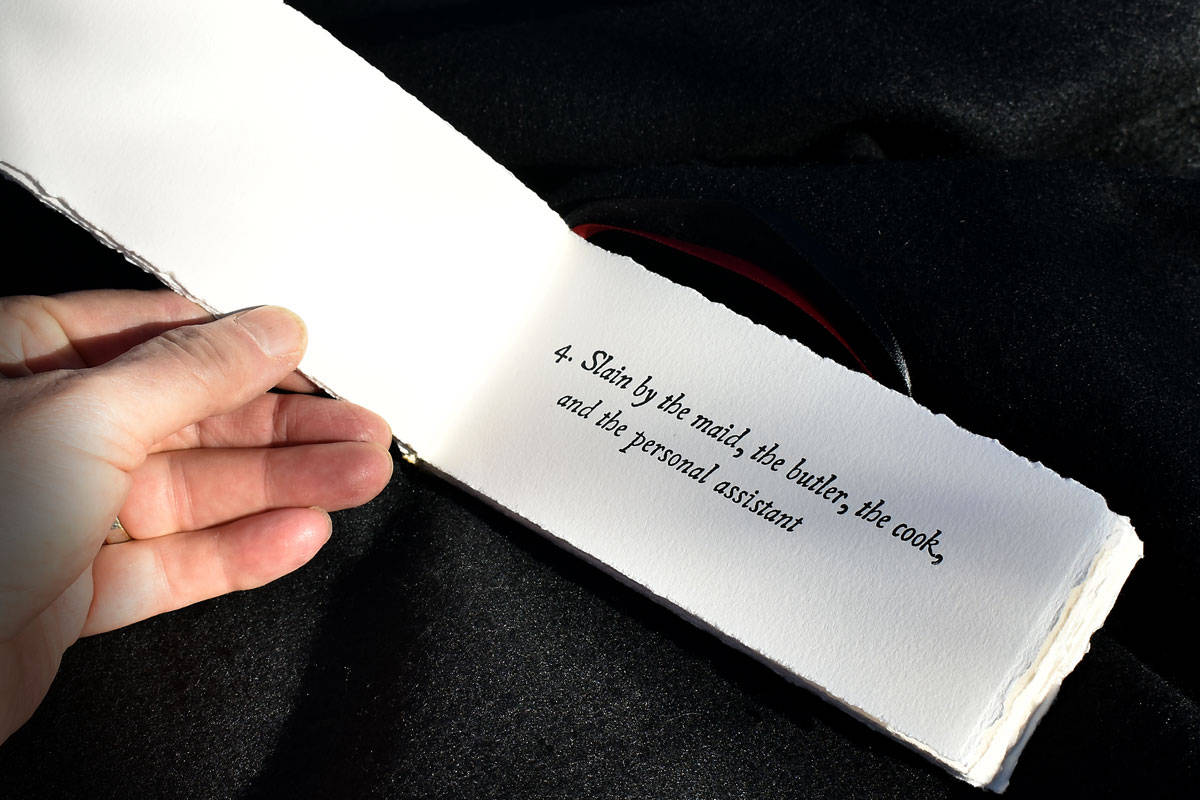 4. Slain by the maid, the butler, the cook,
and the personal assistant